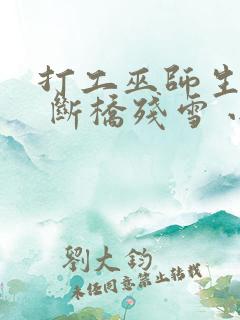 打工巫師生
斷橋殘雪
劉大鈞
未經同意禁止轉載